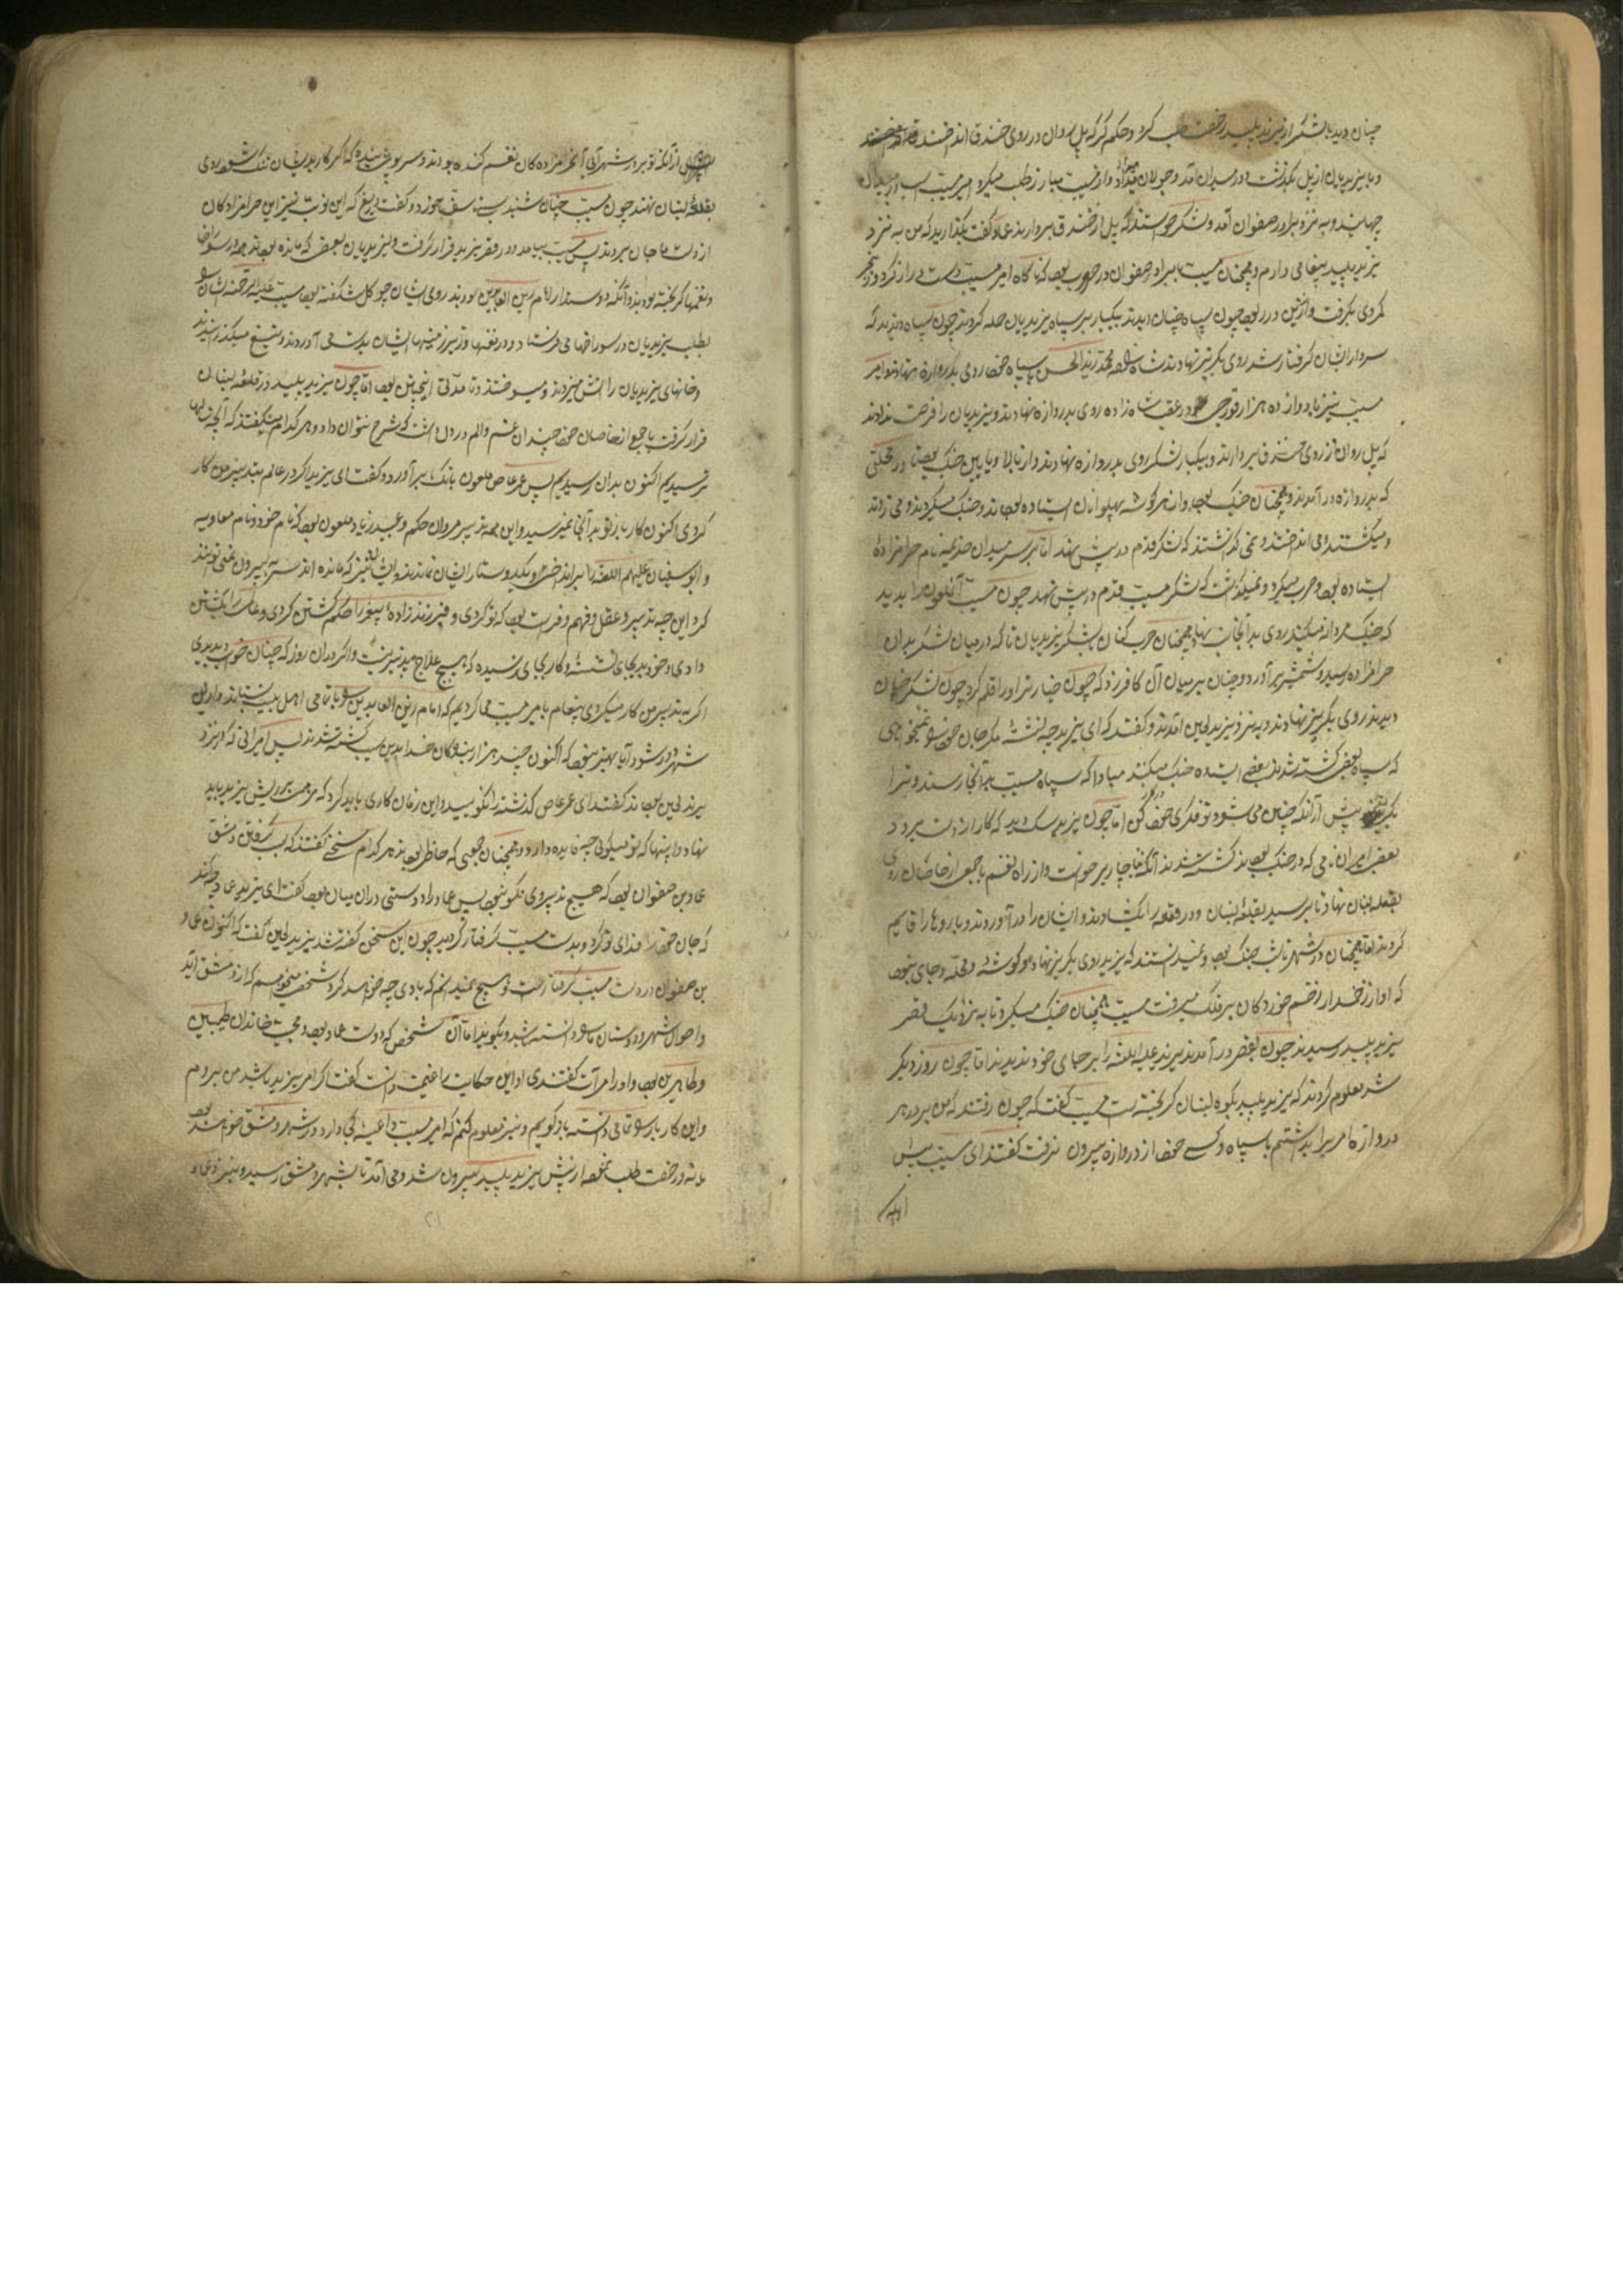 چنان دید با لشکر از یزید پلید رخصت طلب کرد و حکم کرد که پل روان در روی خندق انداختند
و با یزیدیان از پل بگذشت و در میدان آمد و جولان میداد و از مسیب مبارز طلب میکرد امیر مسیب اسب در میدان
جهانید و به نزد برادر صفوان آمد و لشکر خواستند که پل از خندق بردارند عماد گفت بگذارید که من به نزد
یزید پلید پیغامی دارم و همچنان مسیب با برادر صفوان در حرب بود که ناگاه امیر مسیب دست دراز کرد و
کمر وی بگرفت و از زین در ربود چون سپاه چنان دیدند بیکبار بر سپاه یزیدیان حمله کردند چون سپاه دیدند که
سردار ایشان گرفتار شد روی بگریز نهادند شاهزاده محمد با سپاه خود روی بدروازه نهاد و امیر
مسیب نیز با دوازده هزار در عقب شاه زاده روی بدروازه نهادند و یزیدیان را فرصت ندادند
که پل روان از روی خندق بردارند و بیکبار لشکر روی بدروازه نهادند و از بالا و پایین جنک بود تا در محلتی
که بدروازه در آمدند و همچنان جنک بود و از هر گوشه پهلوانان ایستاده بودند و جنک میکردند و می زدند
و میکشتند و می انداختند و نمی گذاشتند که لشکر قدم در پیش نهند اما بر سر میدان نام حرامزادهٔ
ایستاده بود و حرب میکرد و نمیگذاشت که لشکر مسیب قدم در پیش نهد چون مسیب آن ملعون را بدید
که جنک مردانه میکند روی بدانجانب نهاد و همچنان حرب کنان با لشکر یزیدیان تا که در میان لشکر بدان
حرامزاده رسید و شمشیر برآورد و چنان بر میان آن کافر زد که چون خیار تر او را قلم کرد چون لشکر چنان
دیدند روی بگریز نهادند و به نزد یزید لعین آمدند و گفتند که ای یزید چه نشستهٔ مگر جان خود نمیخواهی
که سپاه بعضی کشته شدند و بعضی ایستاده جنک میکنند مبادا که سپاه مسیب بدانجا رسند و ترا
بگیرند پیش از آنکه چنین می شود تو فکر خود کن اما چون یزید سک دید که کار از دست برود
بعضی امیران نامی که در جنک بودند کشته شدند آنگاه ناچار برخواست و از راه نقم با جمعی از خاصان روی
بقلعه لبنان نهاد تا برسید بقلعهٔ لبنان و در قلعه را بکشادند و ایشان را در آوردند و باروها را قایم
کردند اما همچنان در شهر تا شب جنک بود و نمیدانستند که یزید روی بگریز نهاد و هر گوشه و محله و جای نبود
که آواز زخمدار و زخم خوردگان بر فلک نمیرفت مسیب همچنان جنک میکرد تا به نزدیک قصر
یزید پلید رسیدند چون بقصر در آمدند یزید علیه اللعنه را بر جای خود ندیدند اما چون روز دیگر
شد معلوم کردند که یزید پلید بکوه لبنان گریخته است مسیب گفت که چون رفتند که من بر در هر
دروازه امیری را بداشتم با سپاه و کسی خود از دروازه بیرون نرفت گفتند ای مسیب پیش
از آنکه تو بر در شهر آئی آنحرامزاده کان نقم کنده بودند و سر پوشیده که اگر کار بدیشان تنک شود روی
بقلعهٔ لبنان نهند چون مسیب چنان شنید بسی تاسف خورد و گفت دریغ که این نوبت نیز این حرامزادکان
از دست ما جان بردند پس مسیب بیامد و در قصر یزید قرار گرفت و یزیدیان بعضی که مانده بودند همه در سوراخها
و نقمها گریخته بودند و آنکه دوستدار امام زین العابدین بودند روی ایشان چو گل شکفته بود مسیب علیه الرحمه
بطلب یزیدیان در سوراخها می فرستاد و در نقمها و زیر زمینها ایشان بدست می آوردند و بتیغ میگذرانیدند
و خانهای یزیدیان را آتش میزدند و میسوختند و تا مدتی اینچنین بود اما چون یزید پلید در قلعه لبنان
قرار گرفت با جمع از خاصان خود چندان غم و الم در دل داشت که شرح نتوان داد و هر کدام میگفتند که آنچه
ترسیدیم اکنون بدان رسیدیم پس عمر عاص ملعون بانک برآورد و گفت ای یزید اگر در عالم بتدبیر من کار
کردی اکنون کار بار تو بدانجا نمیرسید و این همه تدبیر مروان حکم و عبید زیاد ملعون بود که نام خود و نام معاویه
و ابو سفیان علیهم اللعنه را برانداختی و یک دوستار ایشان نماندند و ایشان نیز که مانده اند سر بیرون نمی توانند
کرد این چه تدبیر و عقل و فهم و فراست بود که تو کردی و فرزند زادهٔ پیغمبر را حکم کشتن کردی و
دادی و خود بر جای نشستهٔ و کار بجای رسیده که هیچ علاج پذیر نیست و اگر در آن روز که چنان خواب دیدی
اگر به تدبیر من کار میکردی پیغام با میر مسیب می کردیم که امام زین العابدین با تمامی اهل بیت بستاند و ازین
شهر دور شود آیا بهتر نبود که اکنون چند هزار بندگان خدا بدین سبب کشته شدند پس امیرانی که در نزد
یزید لعین بودند گفتند ای عمر عاص گذشته را نگویید و این زمان کاری باید کرد که مرهمت بر ریش یزید باید
نهاد و اینها که تو میگوئی چه فایده دارد و همچنان جمعی که حاضر بودند هر کدام سخنی گفتند که بسبب گرفتن دمشق
عماد بن صفوان بود که هیچ تدبیر وی نگو نبود پس عماد را دوستی در آن میان بود گفت ای یزید عماد چه کند
که جان خود را فدای تو کرد و بدست مسیب گرفتار گردید چون این سخن گفته شد یزید لعین گفت که اکنون عماد
بن صفوان در دست مسیب گرفتار است و هیچ نمیدانم که با وی چه خواهد کرد شخصی میخواهم که از دمشق آید
و احوال شهر و دوستان ما دانسته باشد و بگوید اما آن شخص که دوست عماد بود و محب خاندان طیبین
و طاهرین بود و او را مرآت گفتندی او این حکایت را غنیمت دانست گفت اگر امر یزید باشد من بروم
و این کار بار تمامی دانسته باز گویم و نیز معلوم کنم که امیر مسیب داعیهٔ کجا دارد و در شهر دمشق خواهند بود
یا نه و رخصت طلب نمود از پیش یزید پلید بیرون شد و می آمد تا بشهر دمشق رسید و بنزد عماد